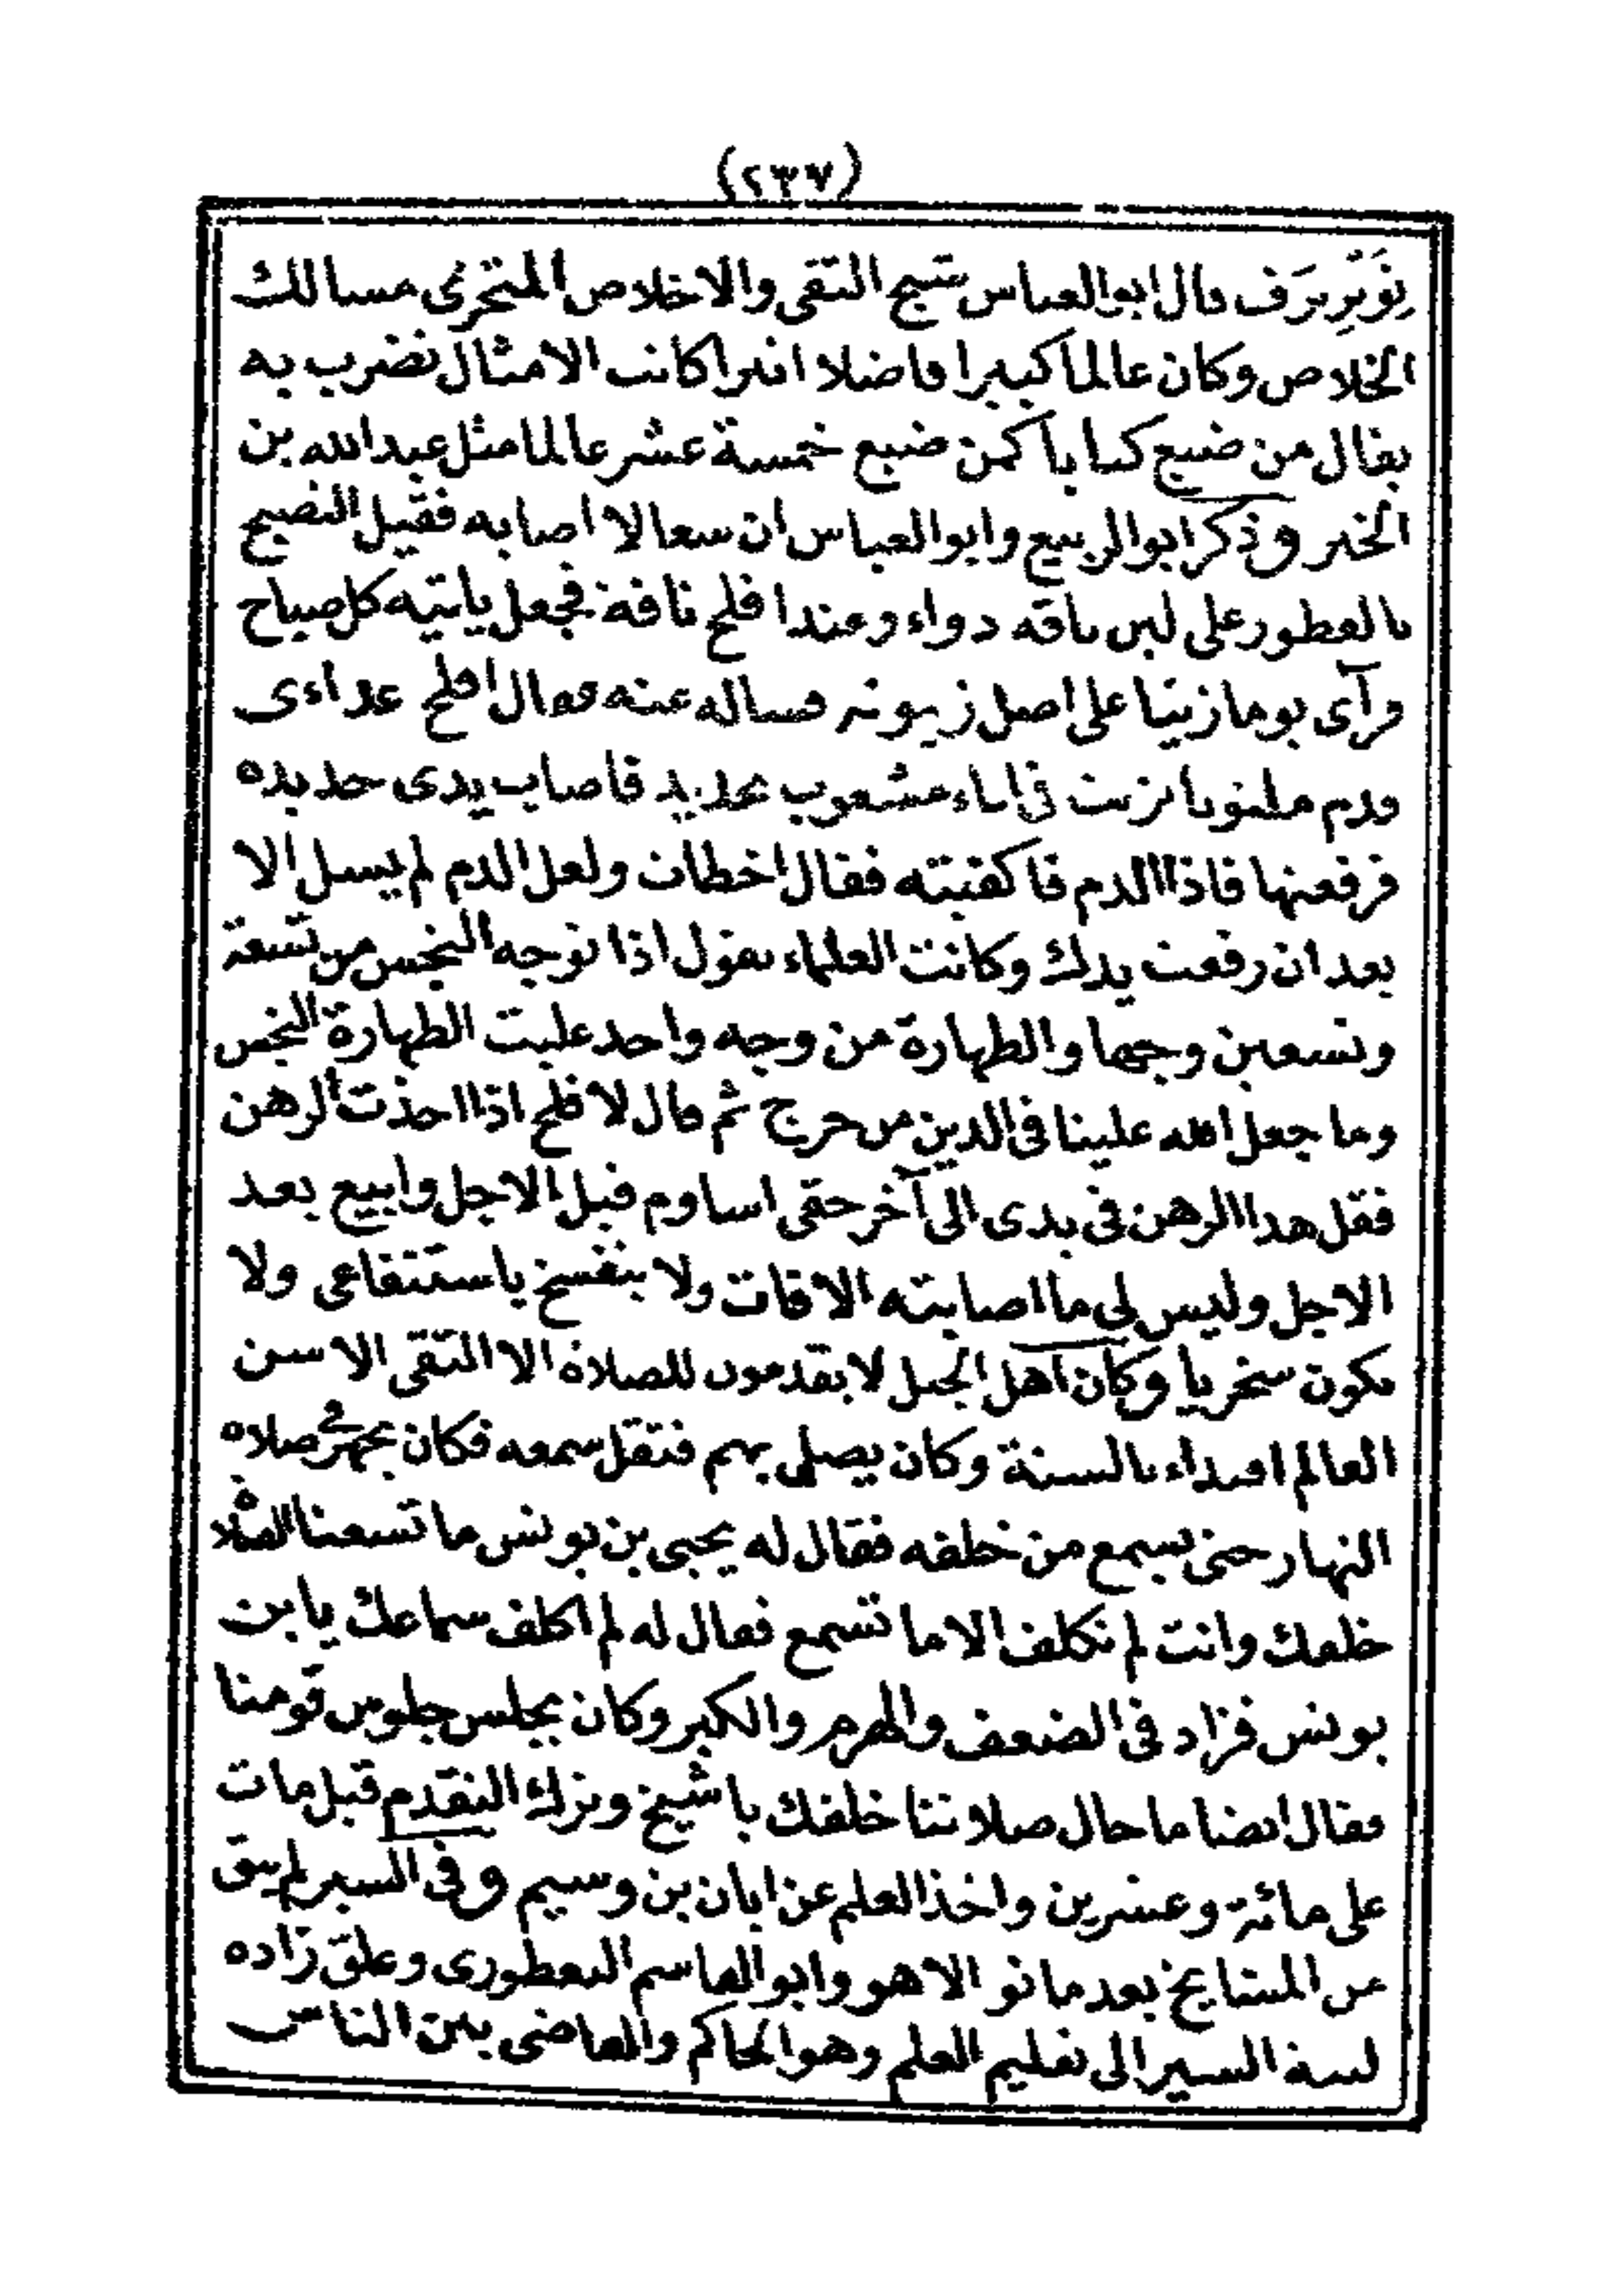 (٢٣٧)
قال ابو العباس شيخ التقى والاخلاص المتحرى مسالك
الخلاص وكان عالما كبيرا فاضلا كانت الامثال تضرب به
يقال من ضيع كتابا كمن ضيع خمسة عشر عالما مثل عبد الله بن
الخير وذكر ابو الربيع وابو العباس ان سعالا اصابه فقيل النضيح
بالفطور على لبن ناقه دواء وعند افلح ناقة فجعل ياتيه كل صباح
فرآى يوما زيتيا على اصل زيتونه فساله عنه فقال افلح غداءى
ودم ملثوا بزيت فى اناء مشعوب بحديد فاصاب يدى حديده
فرفعتها فاذا الدم فاكفيته فقال اخطات ولعل الدم لم يسل الا
بعد ان رفعت يدك وكانت العلماء تقول اذا توجه النجس من تسعة
وتسعين وجها والطهارة من وجه واحد غلبت الطهارة النجس
وما جعل الله علينا فى الدين من حرج ثم قال لافلح اذا اخذت الرهن
فقل هذا الرهن فى يدى الى آخر حقى اساوم قبل الاجل وابيع بعد
الاجل وليس لى ما اصابته الافات ولا ينفسخ باستنفاعى ولا
تكون سخريا وكان اهل الجبل لا يقدمون للصلاة الا التقى الاسن
العالم اقتداء بالسنة وكان يصلى بهم فثقل سمعه فكان يجهر فى صلاه
النهار حتى يسمع من خلفه فقال له يحيى بن يونس ما تسعنا الصلاة
خلفك وانت لم تكلف الا ما تسمع فقال له لم اكلف سماعك يا بن
يونس فزاد فى الضعف والهرم والكبر وكان يجلس جلوس قومنا
فقال ايضا ما حال صلاتنا خلفك يا شيخ وترك التقدم قبل مات
على مائة وعشرين واخذ العلم عن ابان بن وسيم وفى السير لم يبق
من المشايخ بعد مانو الا هو وابو القاسم البغطورى وعلق زاده
لسنة السير الى تعليم العلم وهو الحاكم والقاضى بين الناس